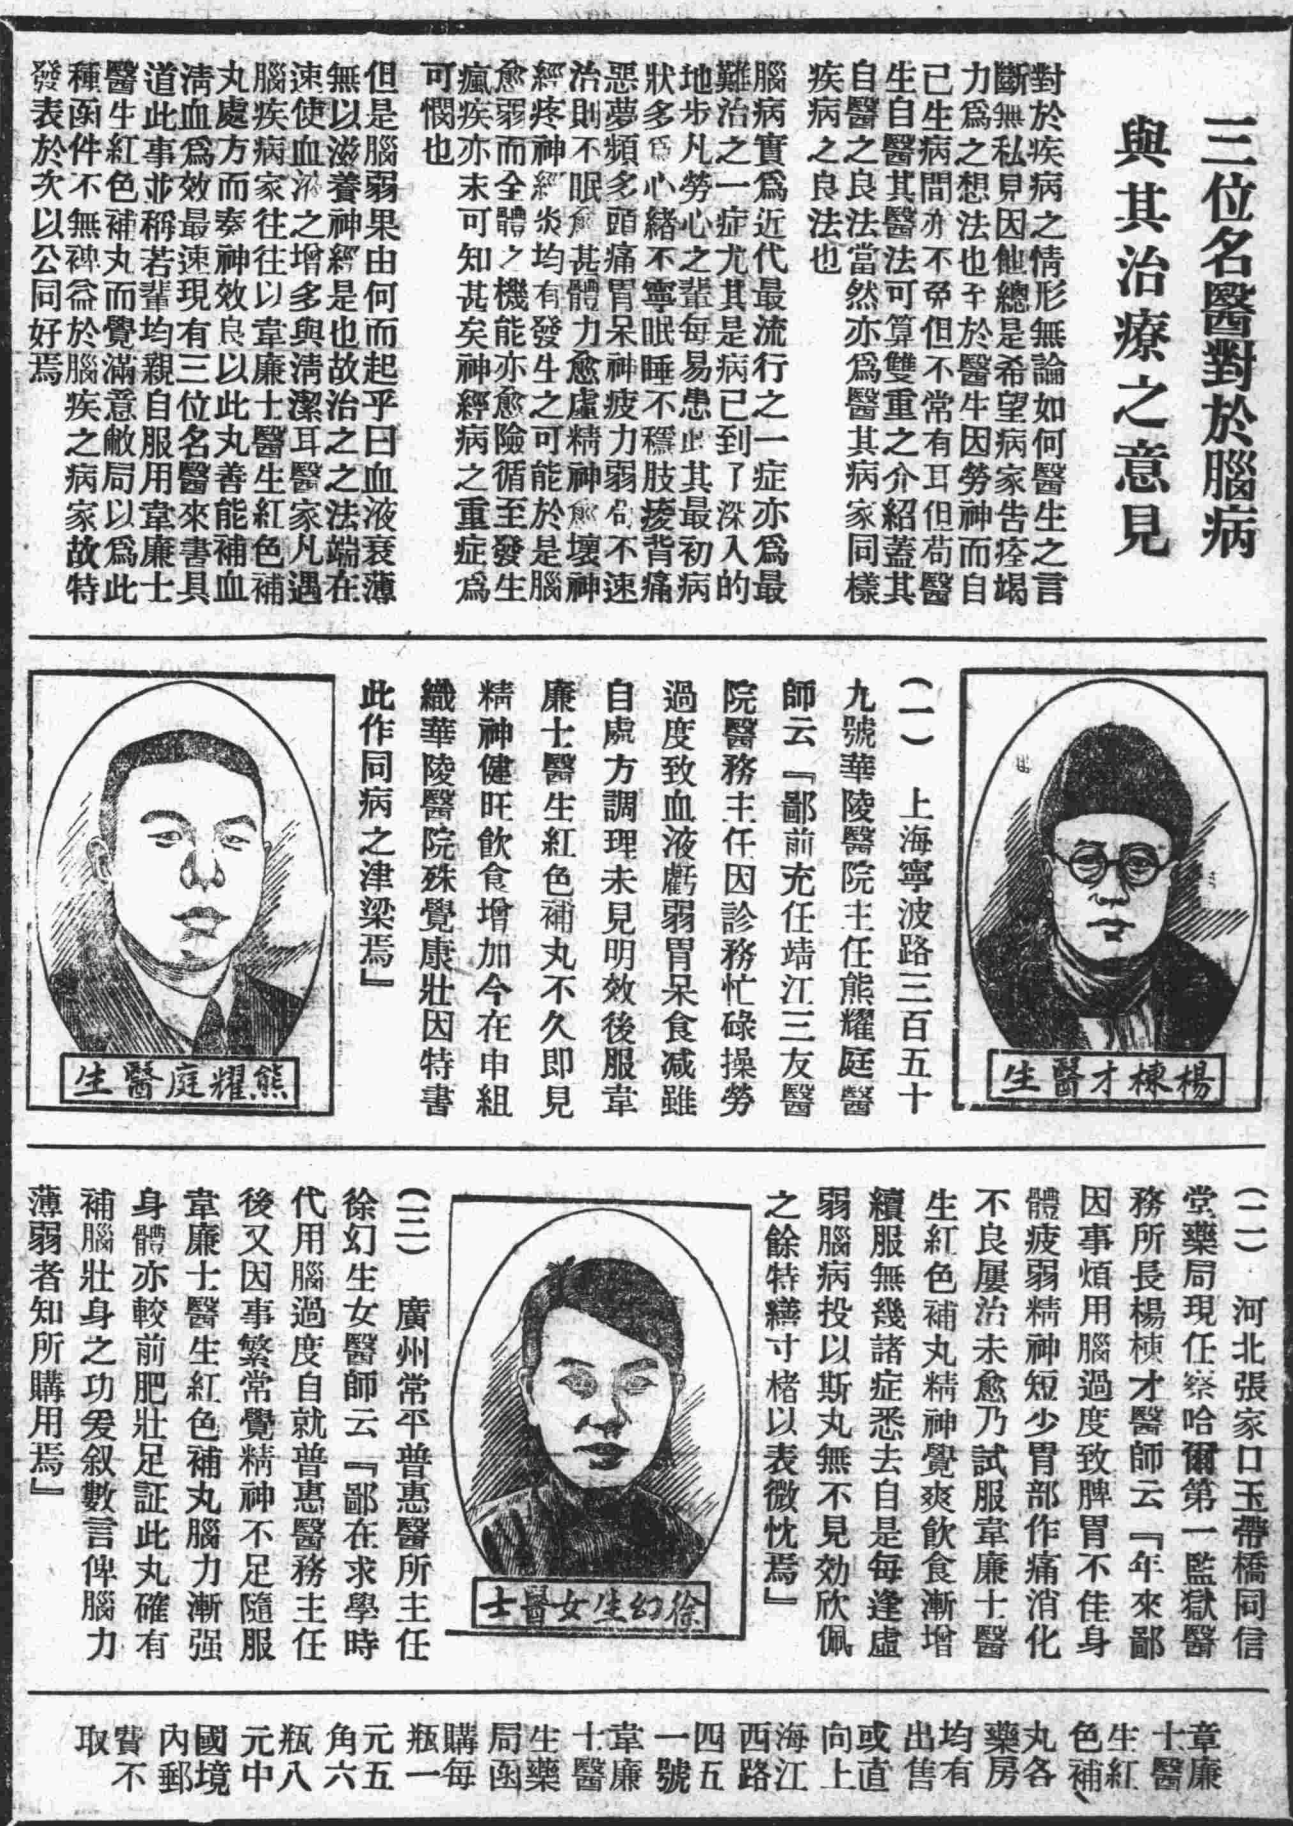 三位名醫對於腦病
與其治療之意見
對於疾病之情形無論如何醫生之言
斷無私見因他總是希望病家告痊竭
力爲之想法也至於醫生因勞神而自
已生病間亦不免但不常有耳但苟醫
生自醫其醫法可算雙重之介紹蓋其
自醫之良法當然亦爲醫其病家同樣
疾病之良法也
腦病實爲近代最流行之一症亦爲最
難治之一症尤其是病已到了深入的
地步凡勞心之輩每易患此其最初病
狀多爲心緒不寧眠睡不穩肢痠背痛
惡夢頻多頭痛胃呆神疲力弱苟不速
治則不眠愈甚體力愈虛精神愈壞神
經疼神經炎均有發生之可能於是腦
愈弱而全體之機能亦愈險循至發生
瘋疾亦未可知甚矣神經病之重症爲
可憫也
但是腦弱果由何而起乎曰血液衰薄
無以滋養神經是也故治之之法端在
速使血液之增多與清潔耳醫家凡遇
腦疾病家往往以韋廉士醫生紅色補
丸處方而奏神效良以此丸善能補血
清血爲效最速現有三位名醫來書具
道此事並稱若輩均親自服用韋廉士
醫生紅色補丸而覺滿意敝局以爲此
種函件不無裨益於腦疾之病家故特
發表於次以公同好焉
楊棟才醫生
(一) 上海寧波路三百五十
九號華陵醫院主任熊耀庭醫
師云『鄙前充任靖江三友醫
院醫務主任因診務忙碌操勞
過度致血液虧弱胃呆食減雖
自處方調理未見明效後服韋
廉士醫生紅色補丸不久即見
精神健旺飲食增加今在申組
織華陵醫院殊覺康壯因特書
此作同病之津梁焉』
熊耀庭醫生
(二) 河北張家口玉帶橋同信
堂藥局現任察哈爾第一監獄醫
務所長楊棟才醫師云『年來鄙
因事煩用腦過度致脾胃不佳身
體疲弱精神短少胃部作痛消化
不良屢治未愈乃試服韋廉士醫
生紅色補丸精神覺爽飲食漸增
續服無幾諸症悉去自是每逢虛
弱腦病投以斯丸無不見効欣佩
之餘特繕寸楮以表微忱焉』
徐幻生女醫士
(三) 廣州常平普惠醫所主任
徐幻生女醫師云『鄙在求學時
代用腦過度自就普惠醫務主任
後又因事繁常覺精神不足隨服
韋廉士醫生紅色補丸腦力漸强
身體亦較前肥壯足証此丸確有
補腦壯身之功爰叙數言俾腦力
薄弱者知所購用焉』
韋廉
士醫
生紅
色補
丸各
藥房
均有
出售
或直
向上
海江
西路
四五
一號
韋廉
士醫
生藥
局函
購每
瓶一
元五
角六
瓶八
元中
國境
內郵
費不
取